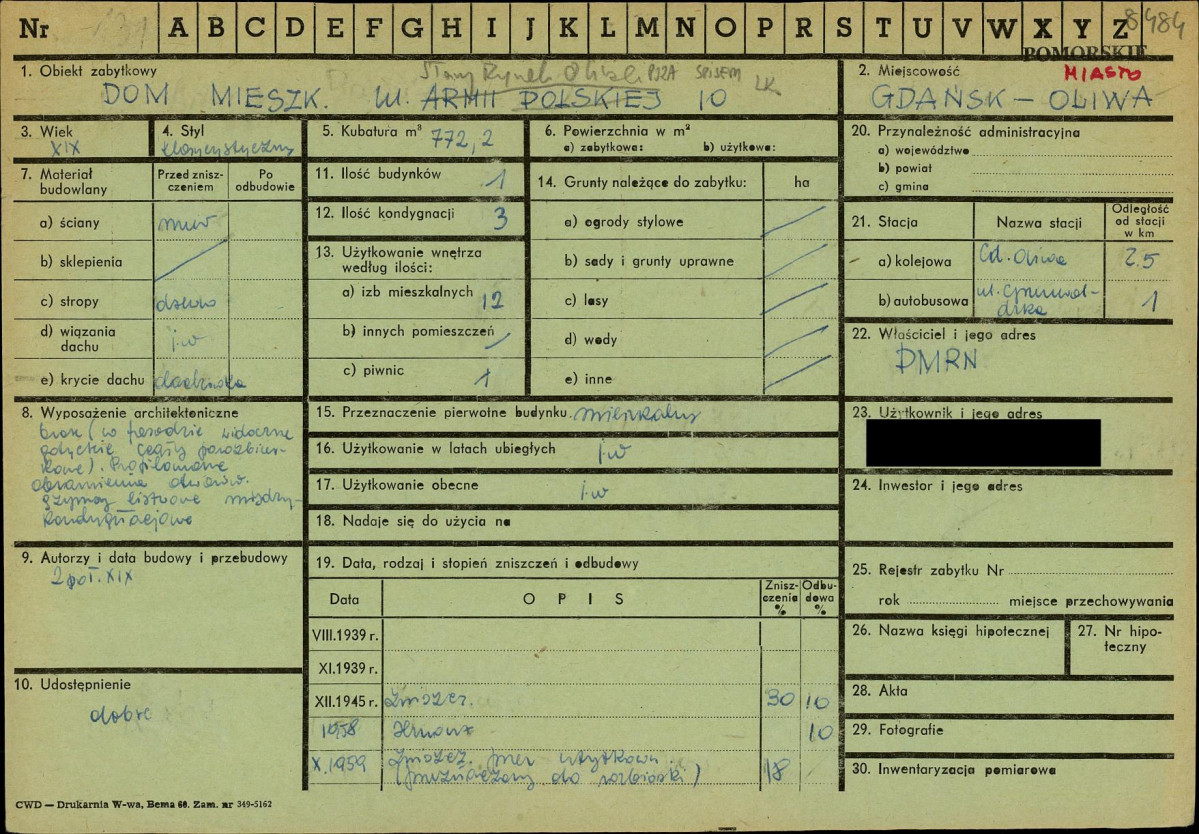 Nr A B C D E F G H I J K L M N O P R S T U V W X Y Z 8484
POMORSKIE
Stary Rynek Oliwski POZA SPISEM
1. Obiekt zabytkowy
DOM MIESZK. ul. ARMII POLSKIEJ 10
2. Miejscowość MIASTO
GDAŃSK – OLIWA
3. Wiek
XIX
4. Styl
klasycystyczny
5. Kubatura m³ 772,2
6. Powierzchnia w m²
a) zabytkowa: b) użytkowa:
7. Materiał budowlany
Przed zniszczeniem
Po odbudowie
a) ściany mur
b) sklepienia
c) stropy drewno
d) wiązania dachu j.w
e) krycie dachu dachówka
8. Wyposażenie architektoniczne
brak (w fasadzie widoczne
gotyckie cegły
). Profilowane
obramienia otworów.
gzymsy listwowe między-
kondygnacjowe
9. Autorzy i data budowy i przebudowy
2 poł. XIX
10. Udostępnienie
dobre
11. Ilość budynków 1
12. Ilość kondygnacji 3
13. Użytkowanie wnętrza
według ilości:
a) izb mieszkalnych 12
b) innych pomieszczeń
c) piwnic 1
14. Grunty należące do zabytku: ha
a) ogrody stylowe
b) sady i grunty uprawne
c) lasy
d) wody
e) inne
15. Przeznaczenie pierwotne budynku. mieszkalny
16. Użytkowanie w latach ubiegłych j.w
17. Użytkowanie obecne j.w
18. Nadaje się do użycia na
19. Data, rodzaj i stopień zniszczeń i odbudowy
Data OPIS Zniszczenia % Odbudowa %
VIII.1939 r.
XI.1939 r.
XII.1945 r. Zniszcz. 30 10
1958 Remont 10
X.1959 Zniszcz. przez użytkown.
(przeznaczony do rozbiórki) 18
20. Przynależność administracyjna
a) województwo
b) powiat
c) gmina
21. Stacja Nazwa stacji Odległość od stacji w km
a) kolejowa Gd. Oliwa 2.5
b) autobusowa ul. Grunwal-
dzka 1
22. Właściciel i jego adres
PMRN
23. Użytkownik i jego adres
24. Inwestor i jego adres
25. Rejestr zabytku Nr
rok miejsce przechowywania
26. Nazwa księgi hipotecznej
27. Nr hipo-
teczny
28. Akta
29. Fotografie
30. Inwentaryzacja pomiarowa
CWD — Drukarnia W-wa, Bema 60. Zam. nr 349-5162